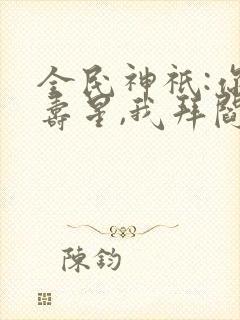 全民神祇:你
壽星,我拜閻
陳鈞